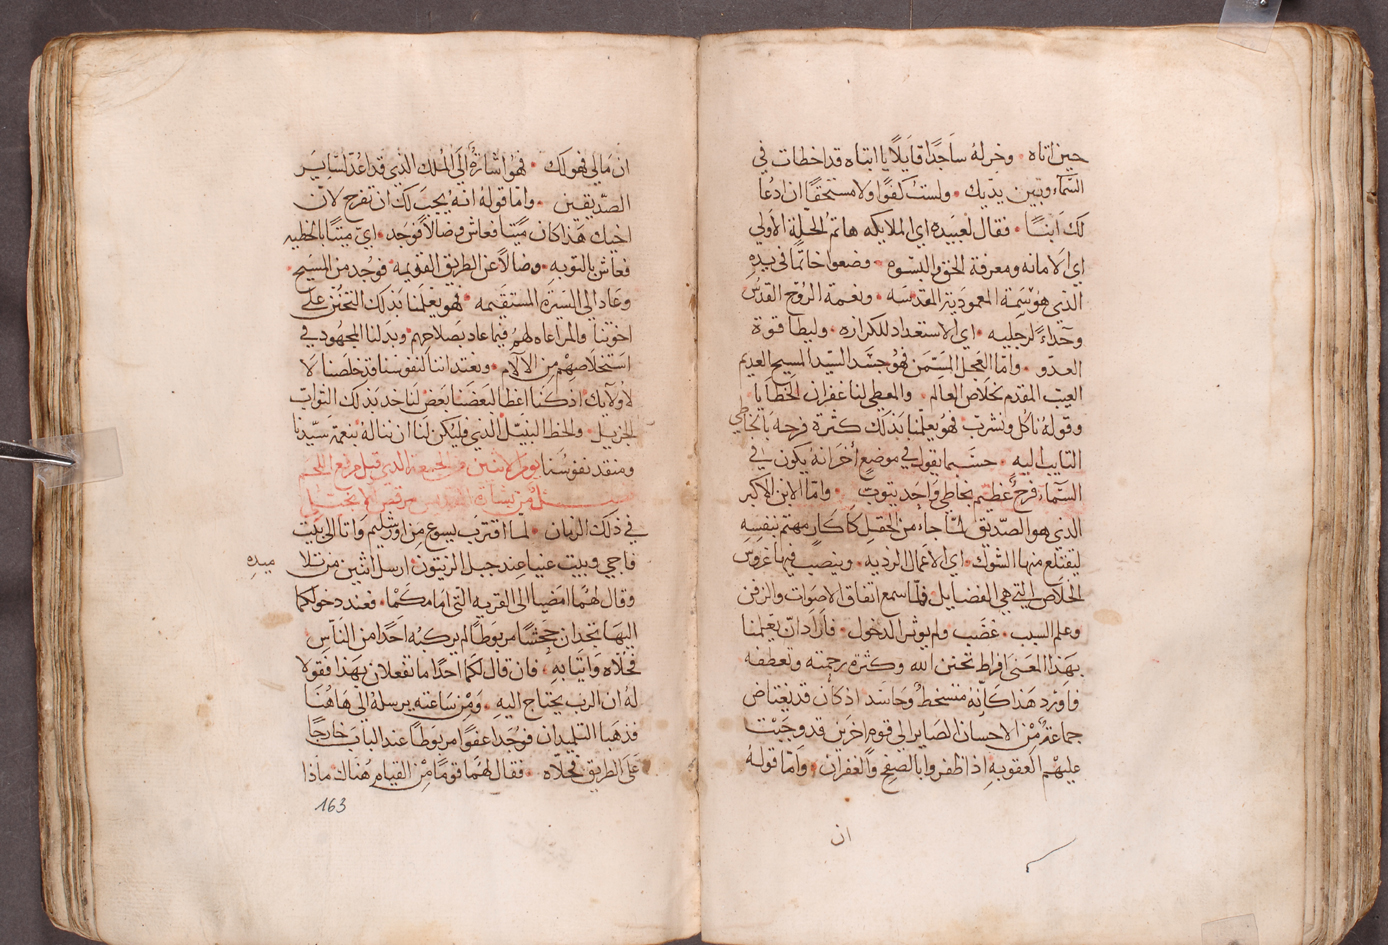 حين اتاه • وخر له ساجدًا قايلًا يا ابتاه قد اخطات في
السّماء وبين يديك • ولست كفوًا ولا مستحقًا ان ادعا
لك ابنًا • فقال لعبيده اي الملايكه هاتم الحلة الاولي
اي الامانه ومعرفة الحق والبنوه • وضعوا خاتمًا في يده
الذي هو سمة المعمودية المقدسه • ونعمة الروح القدس
وحذاءً لرجليه • اي الاستعداد للكرازه • وليطا قوة
العدو • واما العجل المسمن فهو جسد السيد المسيح العديم
العيب المقدم بخلاص العالم • والمعطي لنا غفران الخطايا
وقوله ناكل ونشرب فهو يعلمنا بذلك كثرة فرحه بالخاطي
التايب اليه • حسبما يقول في موضع اخر انه يكون في
السماء فرح عظيم بخاطي واحد يتوب • واما الابن الاكبر
الذي هو الصديق لما جاء من الحقل كاكار مهتم بنفسه
ليقتلع منها الشوك • اي الاعمال الرديه • وينصب فيها غروس
الخلاص التي هي الفضايل • فلما سمع اتفاق الاصوات والزفن
وعلم السبب • غضب ولم يوثر الدخول • فاراد ان يعلمنا
بهذا المعنى افراط تحنن الله وكثرة رحمته وتعطفه
فاورد هذا كانه متسخط وحاسد اذ كان قد يغتاض
جماعة من الاحسان الصاير الى قوم اخرين قد وجبت
عليهم العقوبه اذا ظفروا بالصفح والغفران • واما قوله
ان
ان مالي فهو لك • فهو اشارة الى الملك الذي قد اعد لساير
الصديقين • واما قوله انه يجب لك ان تفرح لان
اخيك هذا كان ميتًا فعاش وضالًا فوجد • اي ميتًا بالخطيه
فعاش بالتوبه • وضالًا عن الطريق القويمه • فوجد من المسيح •
وعاد الى السيرة المستقيمه • فهو يعلمنا بذلك التحنن على
اخوتنا والمراعاه لهم فيما عاد بصلاحهم وبدلنا المجهود في
استخلاصهم من الالام • ونعتد اننا لنفوسنا قد خلصنا لا
لاولايك • اذ كنا اعضا لبعضنا بعض لناخد بذلك التواب
الجزيل • والحظ النبيل الذي فليكن لنا ان نناله بنعمة سيدنا
ومنقد نفوسنا يوم الاثنين من الجمعه الذي قبل مرفع اللحم
فصل من بشارة القديس مرقس الانجيلي
في ذلك الزمان • لما اقترب يسوع من اورشليم واتا الى بيت
فاجي وبيت عنيا عند جبل الزيتون • ارسل اثنين من تلا ميده
وقال لهما امضيا الى القريه التي امامكما • فعند دخولكما
اليها تجدان جحشًا مربوطًا لم يركبه احدًا من الناس
فحلاه واتيا به • فان قال لكما احدًا ما تفعلان بهذا فقولا
له ان الرب يحتاج اليه • ومن ساعته يرسله الى هاهنا
فذهبا التلميدان فوجدا عفوًا مربوطًا عند الباب خارجًا
على الطريق فحلاه • فقال لهما قومًا من القيام هناك ماذا
163